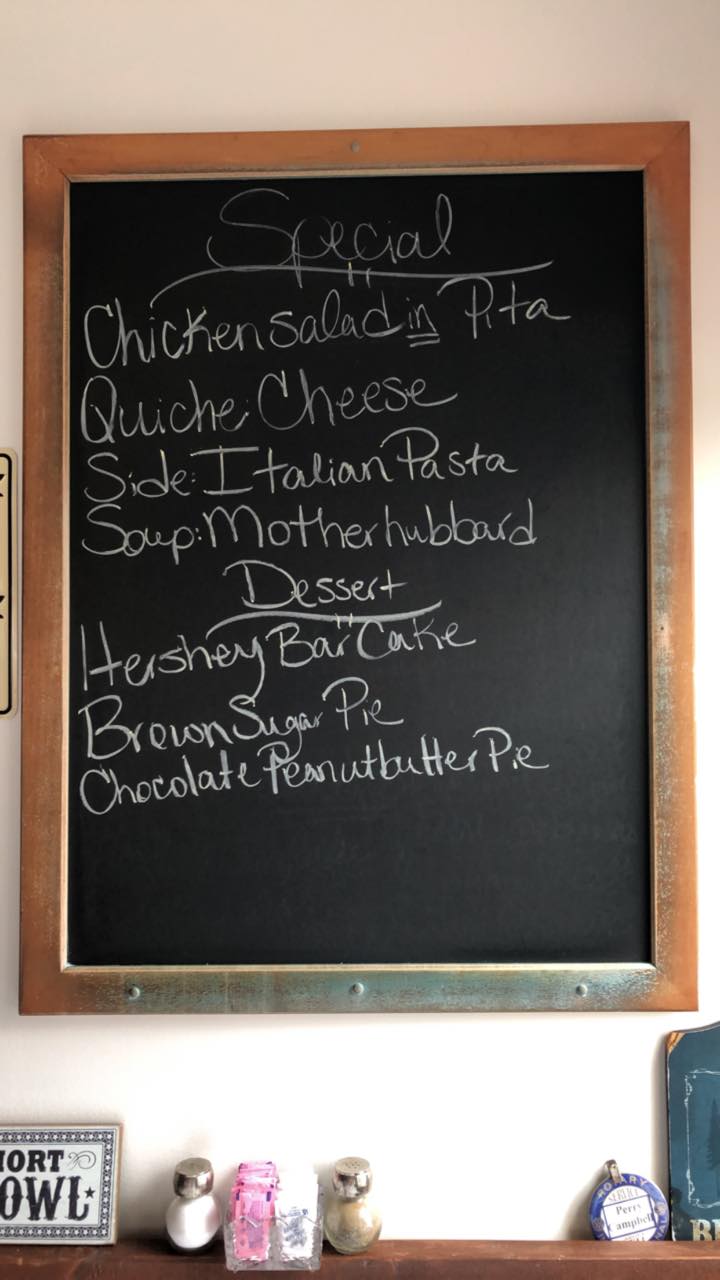 Special
Chicken salad in Pita
Quiche: Cheese
Side: Italian Pasta
Soup: Motherhubbard
Dessert
Hershey Bar Cake
Brown Sugar Pie
Chocolate Peanutbutter Pie
ROTARY
SERVICE
Perry
Campbell